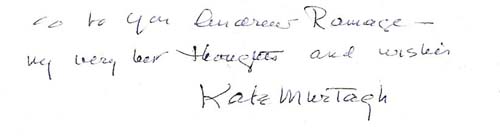 to you Andrew Ramage —
my very best thoughts and wishes
Kate Murtagh